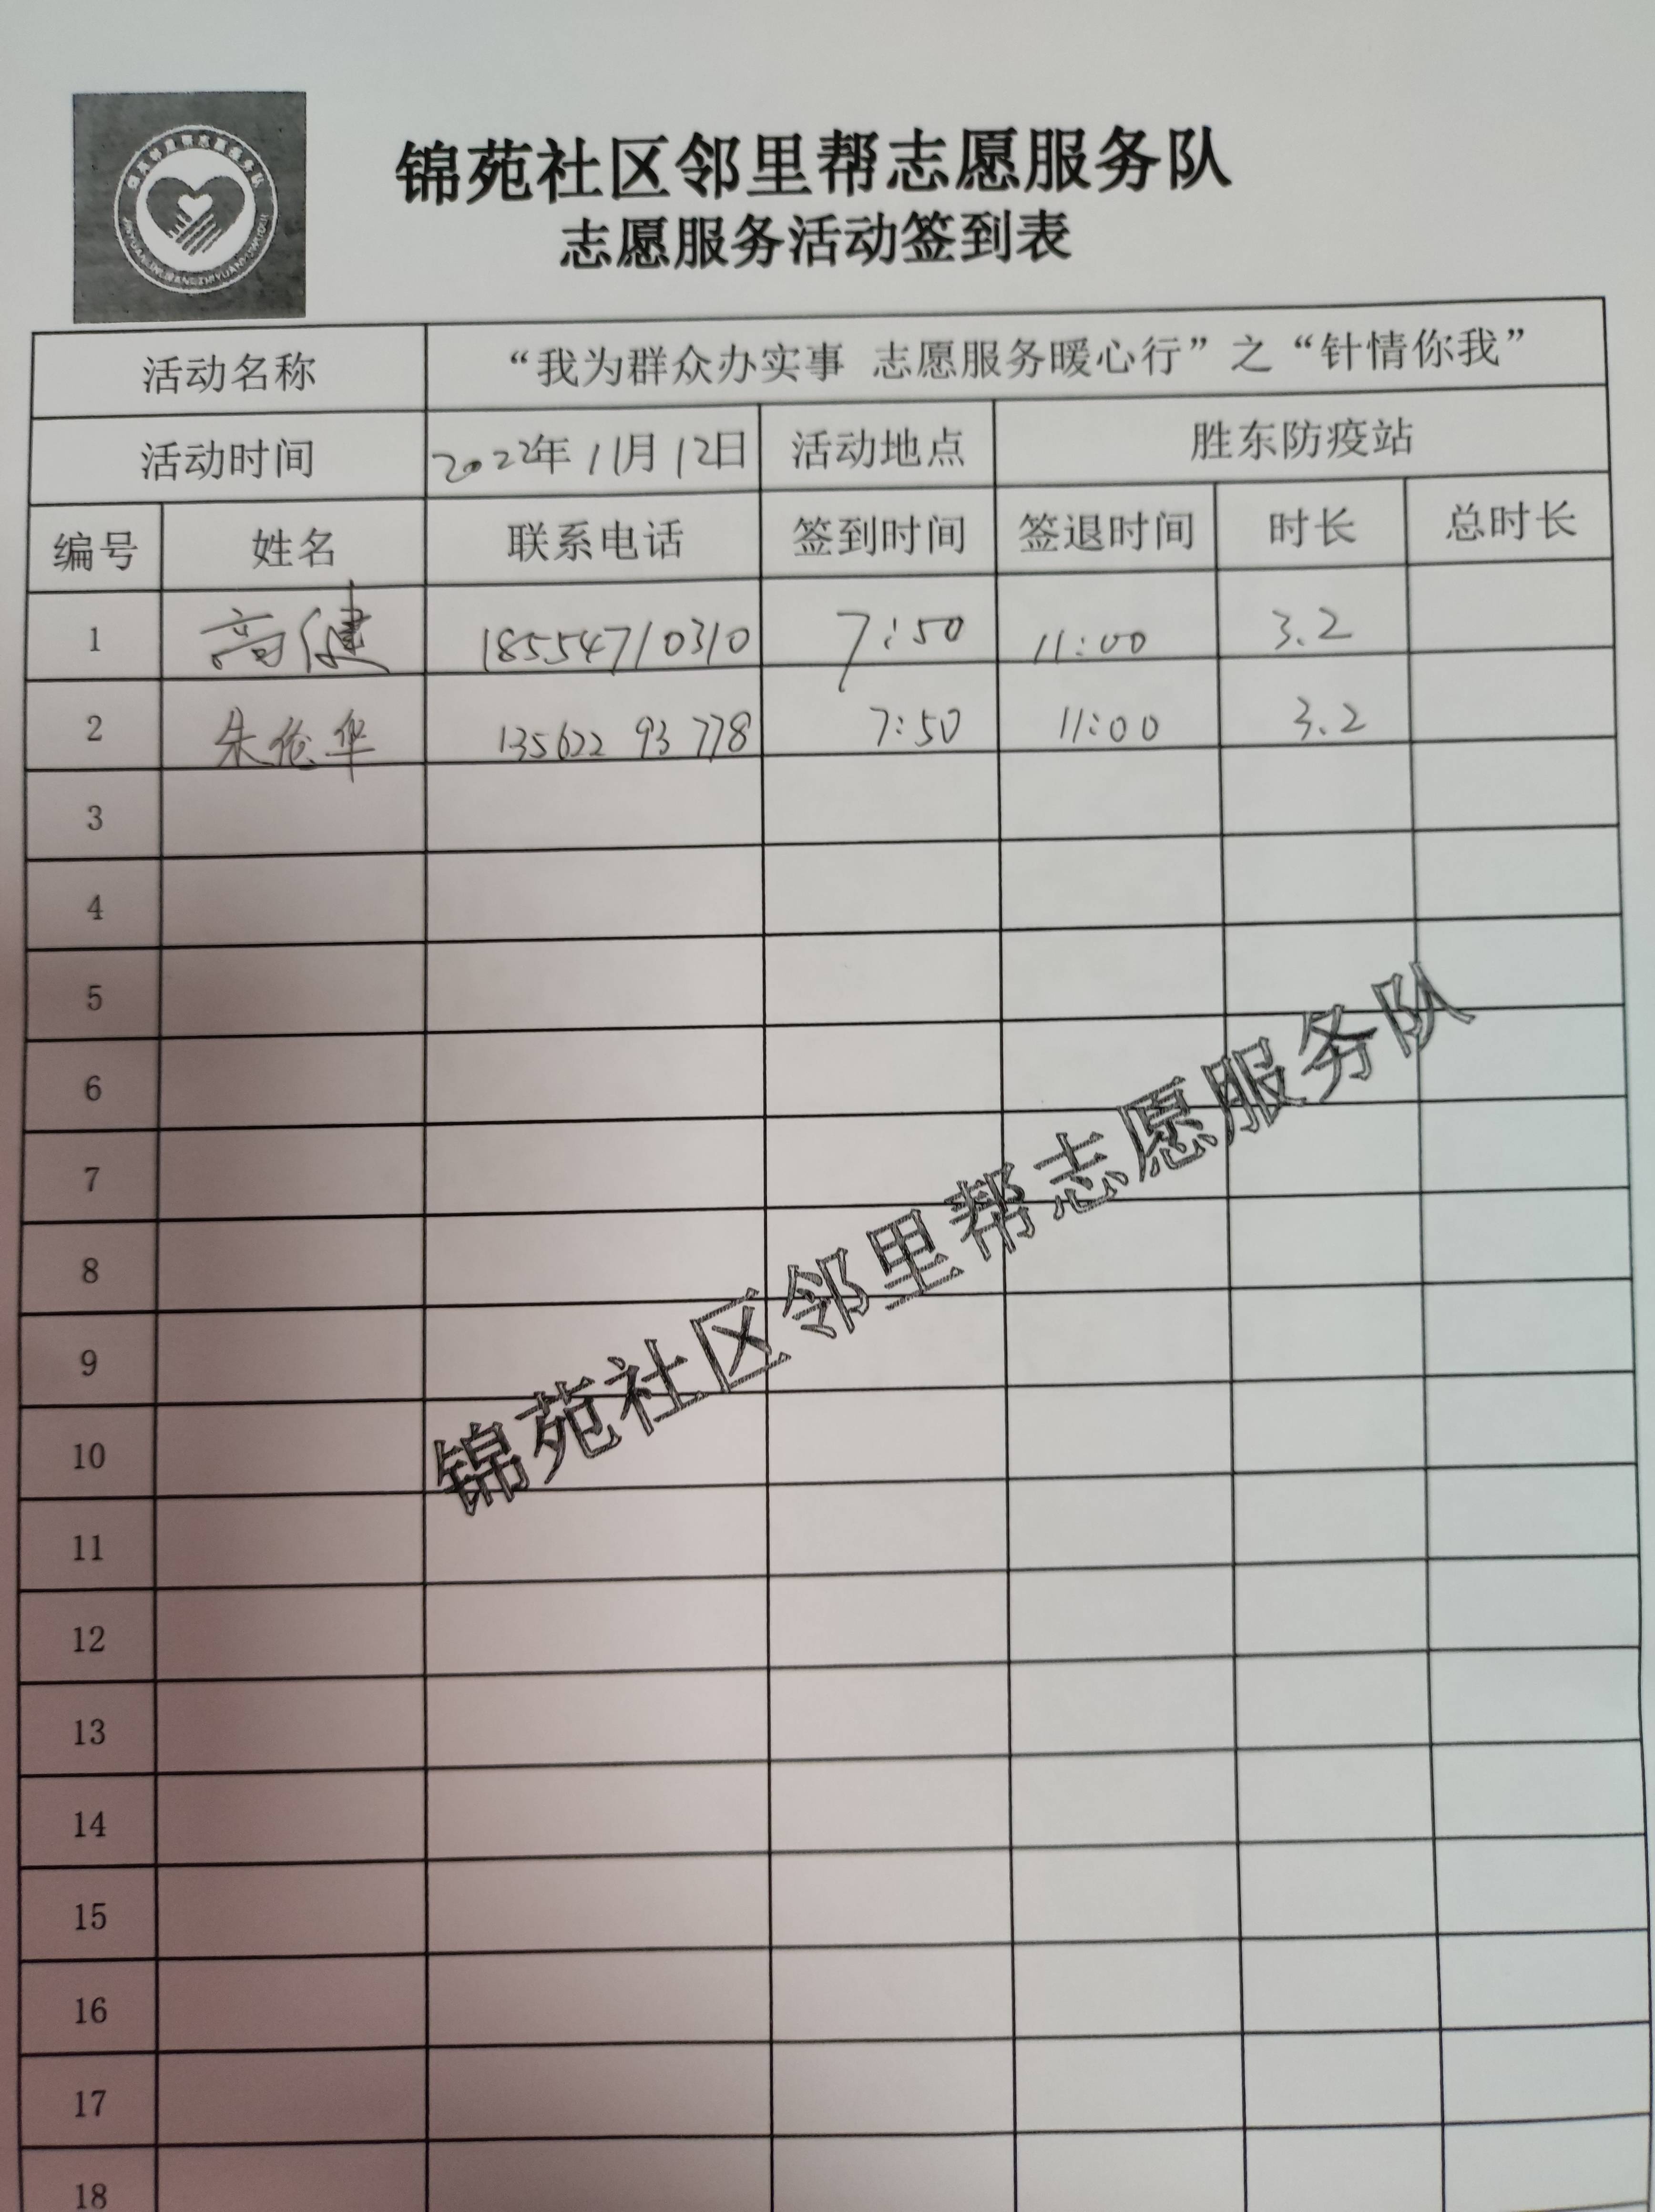 锦苑社区邻里帮志愿服务队
志愿服务活动签到表
活动名称 “我为群众办实事 志愿服务暖心行”之“针情你我”
活动时间 2022年11月12日 活动地点 胜东防疫站
编号 姓名 联系电话 签到时间 签退时间 时长 总时长
1 高健 18554710310 7:50 11:00 3.2
2 朱伦华 13562293778 7:50 11:00 3.2
3
4
5
6
7
8
9
10
11
12
13
14
15
16
17
18
锦苑社区邻里帮志愿服务队